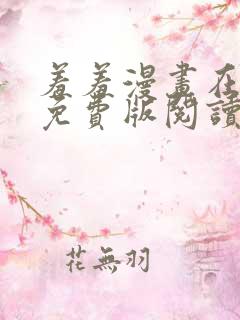 羞羞漫畫在
免費版閱讀
花無羽